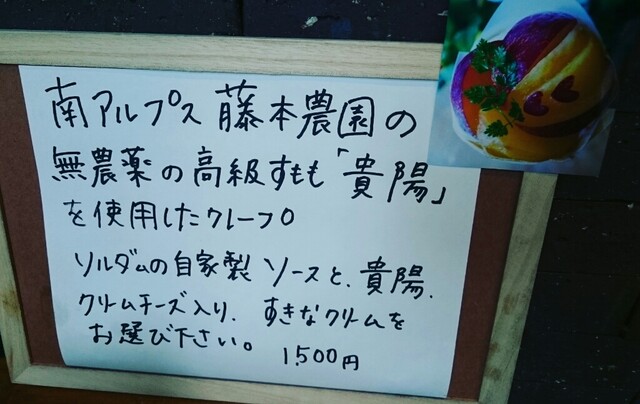 南アルプス 藤本農園の
無農薬の高級すもも「貴陽」
を使用したクレープ。
ソルダムの自家製 ソースと、貴陽、
クリームチーズ入り、すきなクリームを
お選び下さい。 1,500円